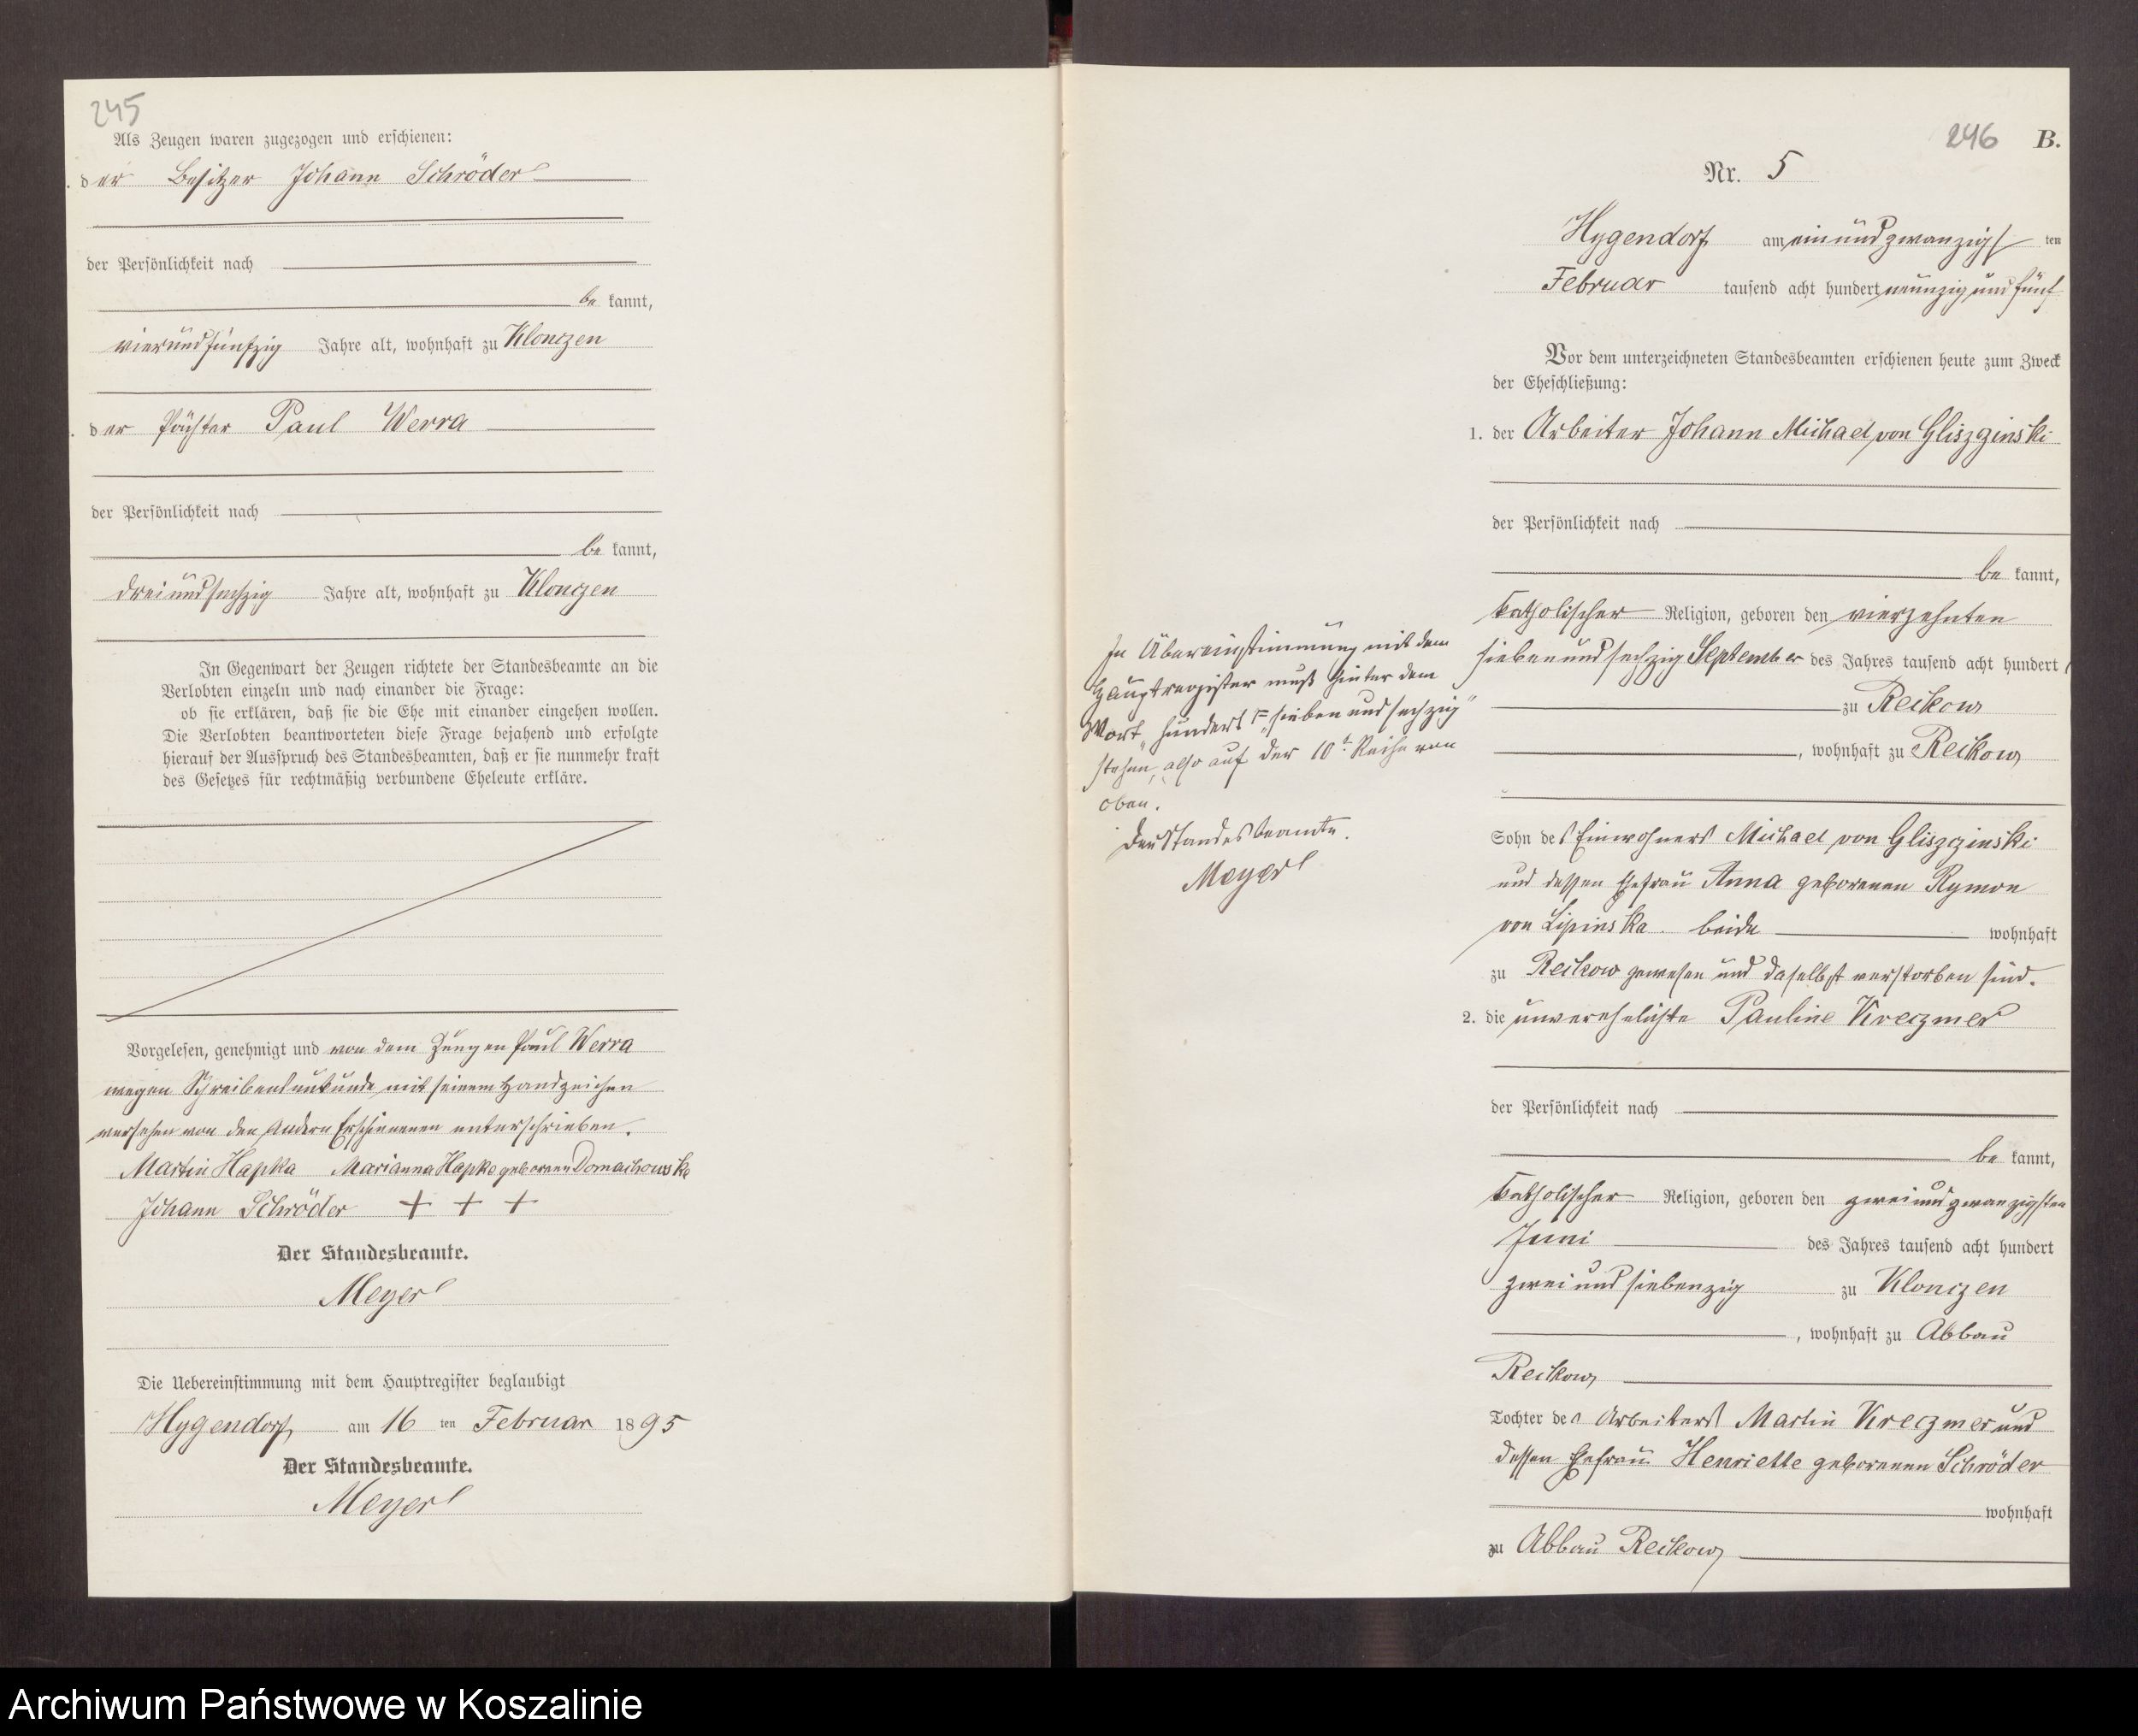 245
Als Zeugen waren zugezogen und erschienen:
der Besitzer Johann Schröder
der Persönlichkeit nach
be kannt,
vierundfünfzig Jahre alt, wohnhaft zu Klonczen
der Pächter Paul Werra
der Persönlichkeit nach
be kannt,
dreiundsechzig Jahre alt, wohnhaft zu Klonczen
In Gegenwart der Zeugen richtete der Standesbeamte an die
Verlobten einzeln und nach einander die Frage:
ob sie erklären, daß sie die Ehe mit einander eingehen wollen.
Die Verlobten beantworteten diese Frage bejahend und erfolgte
hierauf der Ausspruch des Standesbeamten, daß er sie nunmehr kraft
des Gesetzes für rechtmäßig verbundene Eheleute erkläre.
Vorgelesen, genehmigt und von dem Zeugen Paul Werra
wegen Schreibensunkunde mit seinem Handzeichen
versehen von den Andern Erschienenen unterschrieben.
Martin Hapka Marianna Hapke geborene Domachowske
Johann Schröder + + +
Der Standesbeamte.
Meyer
Die Uebereinstimmung mit dem Hauptregister beglaubigt
Hygendorf am 16 ten Februar 1895
Der Standesbeamte.
Meyer
246 B.
Nr. 5
Hygendorf am einundzwanzigsten
Februar tausend acht hundert neunzig und fünf
Vor dem unterzeichneten Standesbeamten erschienen heute zum Zweck
der Eheschließung:
1. der Arbeiter Johann Michael von Gliszginski
der Persönlichkeit nach
be kannt,
katholischer Religion, geboren den vierzehnten
siebenundsechzig September des Jahres tausend acht hundert
zu Reckow
, wohnhaft zu Reckow
Sohn des Einwohners Michael von Gliszczinski
und dessen Ehefrau Anna geborenen Rymon
von Lipinska beide wohnhaft
zu Reckow gewesen und daselbst verstorben sind.
2. die unverehelichte Pauline Kreczmer
der Persönlichkeit nach
be kannt,
katholischer Religion, geboren den zweiundzwanzigsten
Juni des Jahres tausend acht hundert
zweiundsiebenzig zu Klonczen
, wohnhaft zu Abbau
Reckow
Tochter des Arbeiters Martin Kreczmer und
dessen Ehefrau Henriette geborenen Schröder
wohnhaft
zu Abbau Reckow
In Übereinstimmung mit dem
Hauptregister muß hinter dem
Wort "hundert" = "sieben und sechzig"
stehen, also auf der 10t. Reihe von
oben.
Der Standesbeamte.
Meyer
Archiwum Państwowe w Koszalinie